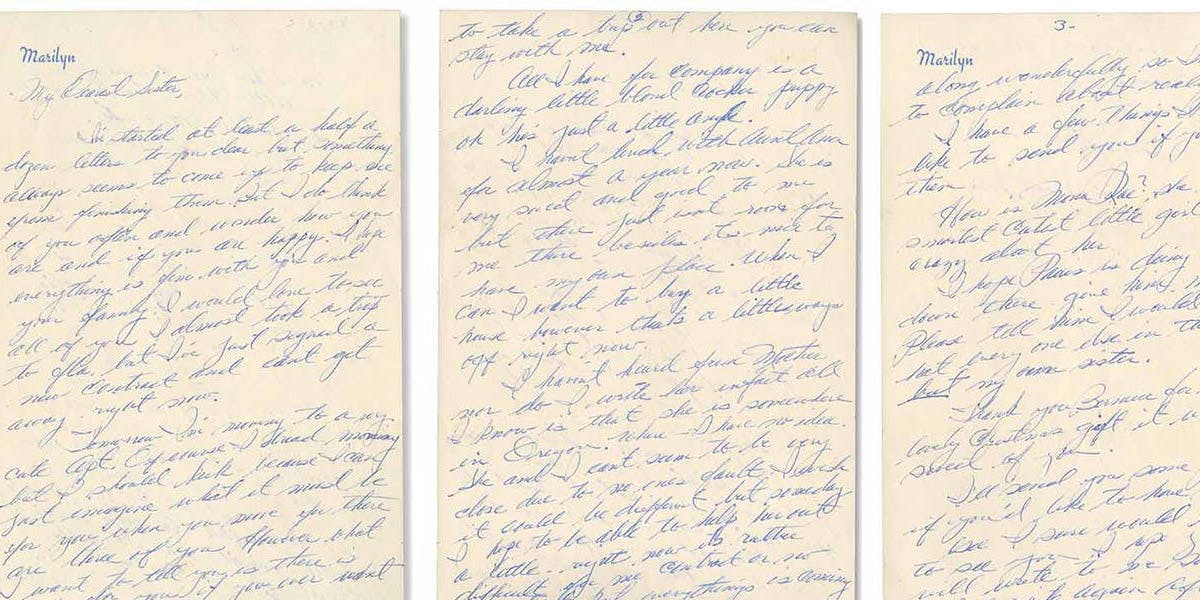 Marilyn
My Dearest Sister,
I've started at least a half a
dozen letters to you dear but something
always seems to come up to keep me
from finishing them. But I do think
of you often and wonder how you
are and if you are happy. I hope
everything is fine with you and
your family. I would love to see
all of you. I almost took a trip
to Fla. but I've just signed a
new contract and can't get
away right now.
Tomorrow I'm moving to a very
cute Apt. Of course I dread moving
but I should kick because I can
just imagine what it must be
for you when you move for there
are three of you. However what
I want to tell you is there is
for you if you ever want
2
to take a trip out here you can
stay with me.
All I have for company is a
darling little blond Cocker puppy
oh he's just a little angel.
I havn't lived with Aunt Ana
for almost a year now. She is
very sweet and good to me
but there just isnt room for
me there besides its nice to
have my own place. When I
can I want to buy a little
house however that's a little ways
off right now.
I havn't heard from Mother
nor do I write her infact all
I know is that she is somewhere
in Oregon. where - I have no idea.
She and I cant seem to be very
close due to no ones fault. I wish
it could be different but someday
I hope to be able to help her out
a little. right now its rather
difficult for me. Contract or no
but everythings is coming
3-
Marilyn
along wonderfully so I
to complain about real
I have a few things I
like to send you if y
them.
How is Mona Rae? She
smartest Cutest little girl
crazy about her
I hope Paris is doing
down there give him m
Please tell him I would
not every one else in th
but my own sister.
Thank you Bernice for
lovely Christmas gift it w
sweet of you.
I'll send you some
if you'd like to have
Gee I sure would
to see you I hope y
will write to me
again